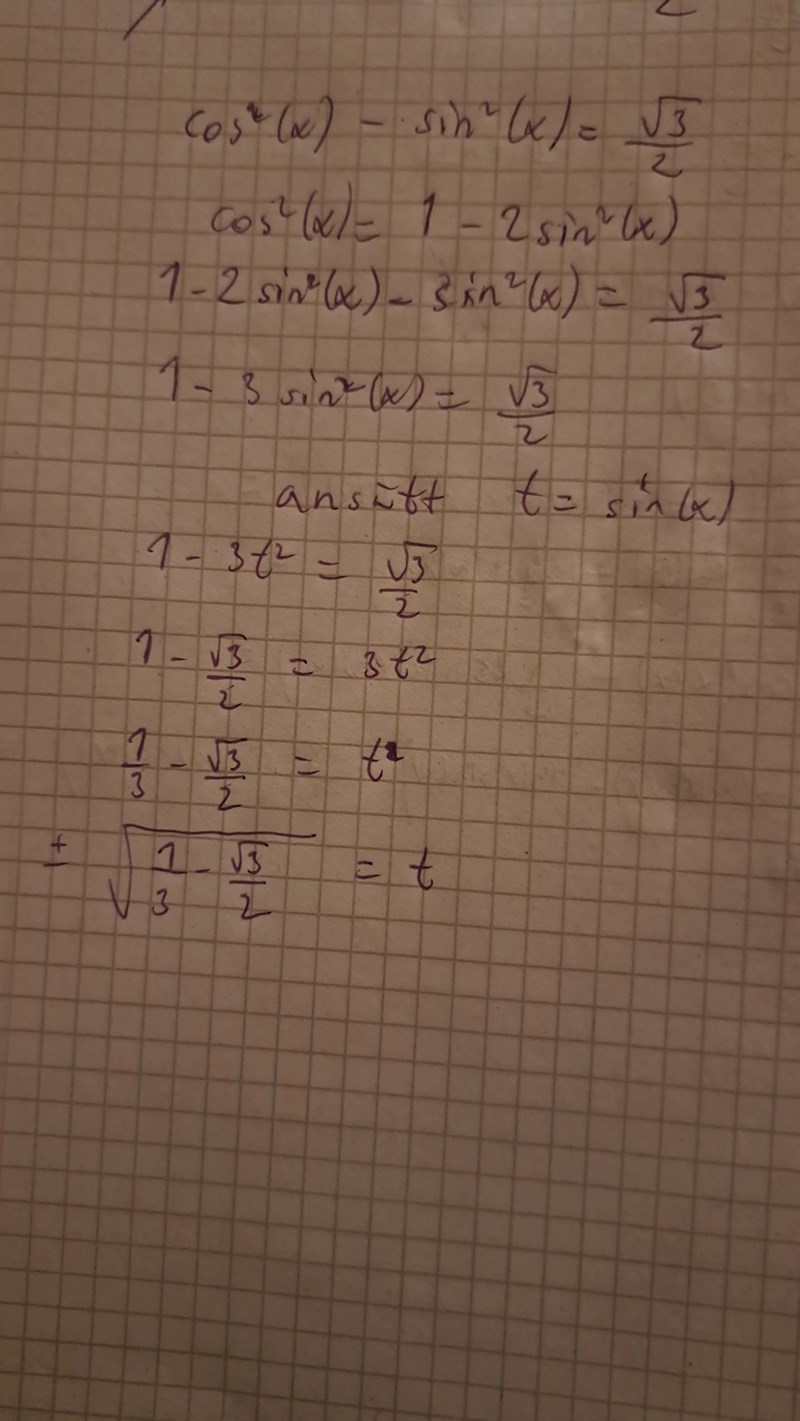 cos²(x) - sin²(x) = √3/2
cos²(x) = 1 - 2sin²(x)
1 - 2sin²(x) - sin²(x) = √3/2
1 - 3 sin²(x) = √3/2
ansätt t = sin(x)
1 - 3t² = √3/2
1 - √3/2 = 3t²
1/3 - √3/2 = t²
± √(1/3 - √3/2) = t